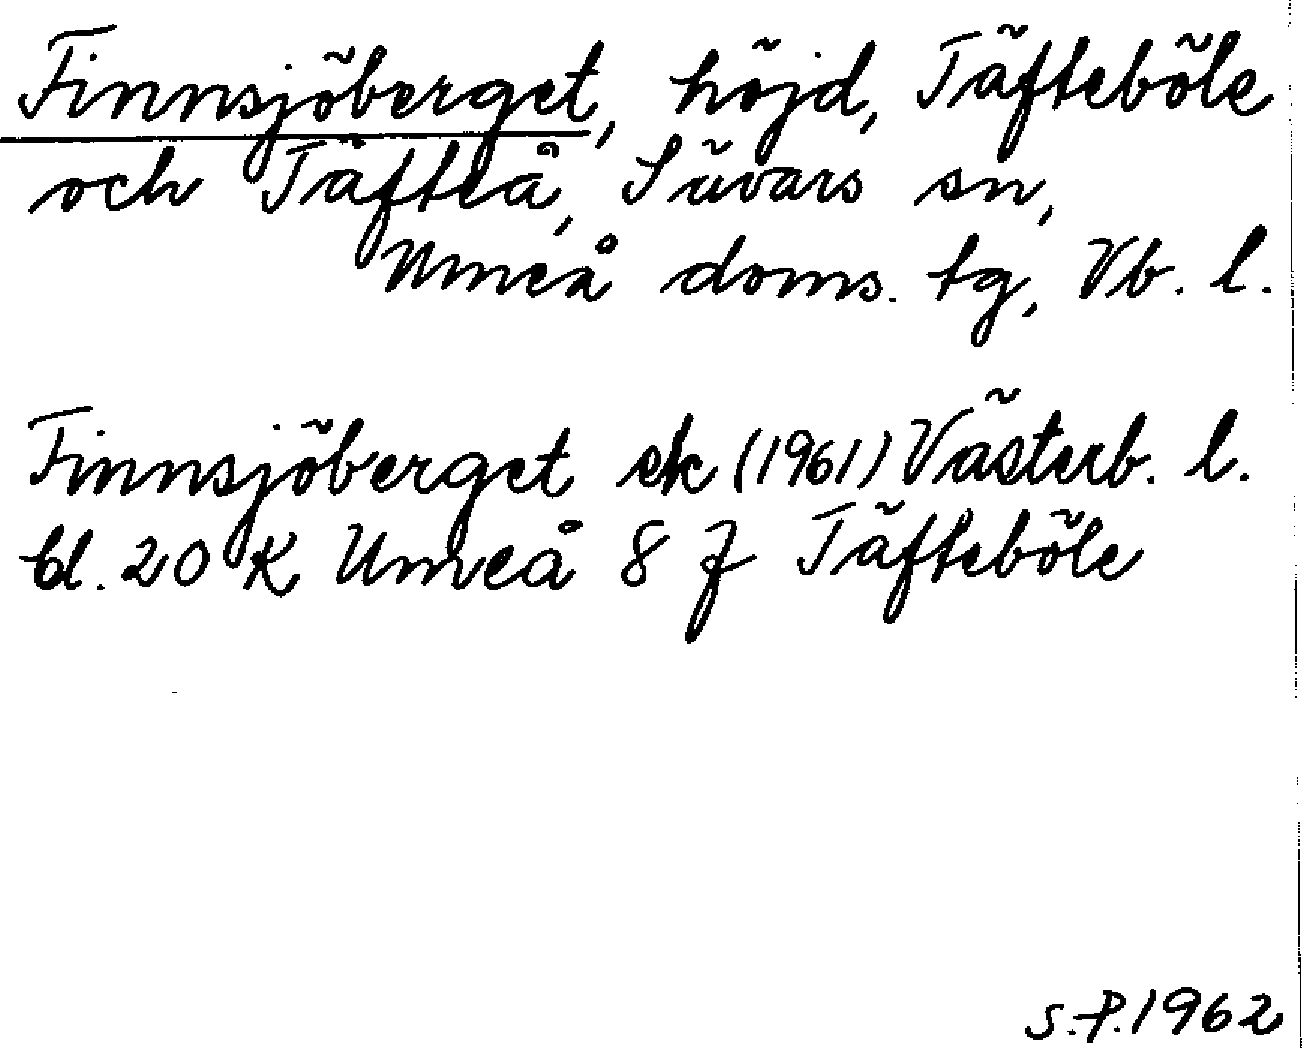 Finnsjöberget, höjd, Täfteböle
och Täfteå, Sävars sn,
Umeå doms. tg, Vb. l.
Finnsjöberget ek (1961) Västerb. l.
bl. 20 K Umeå 8 f Täfteböle
S.P. 1962